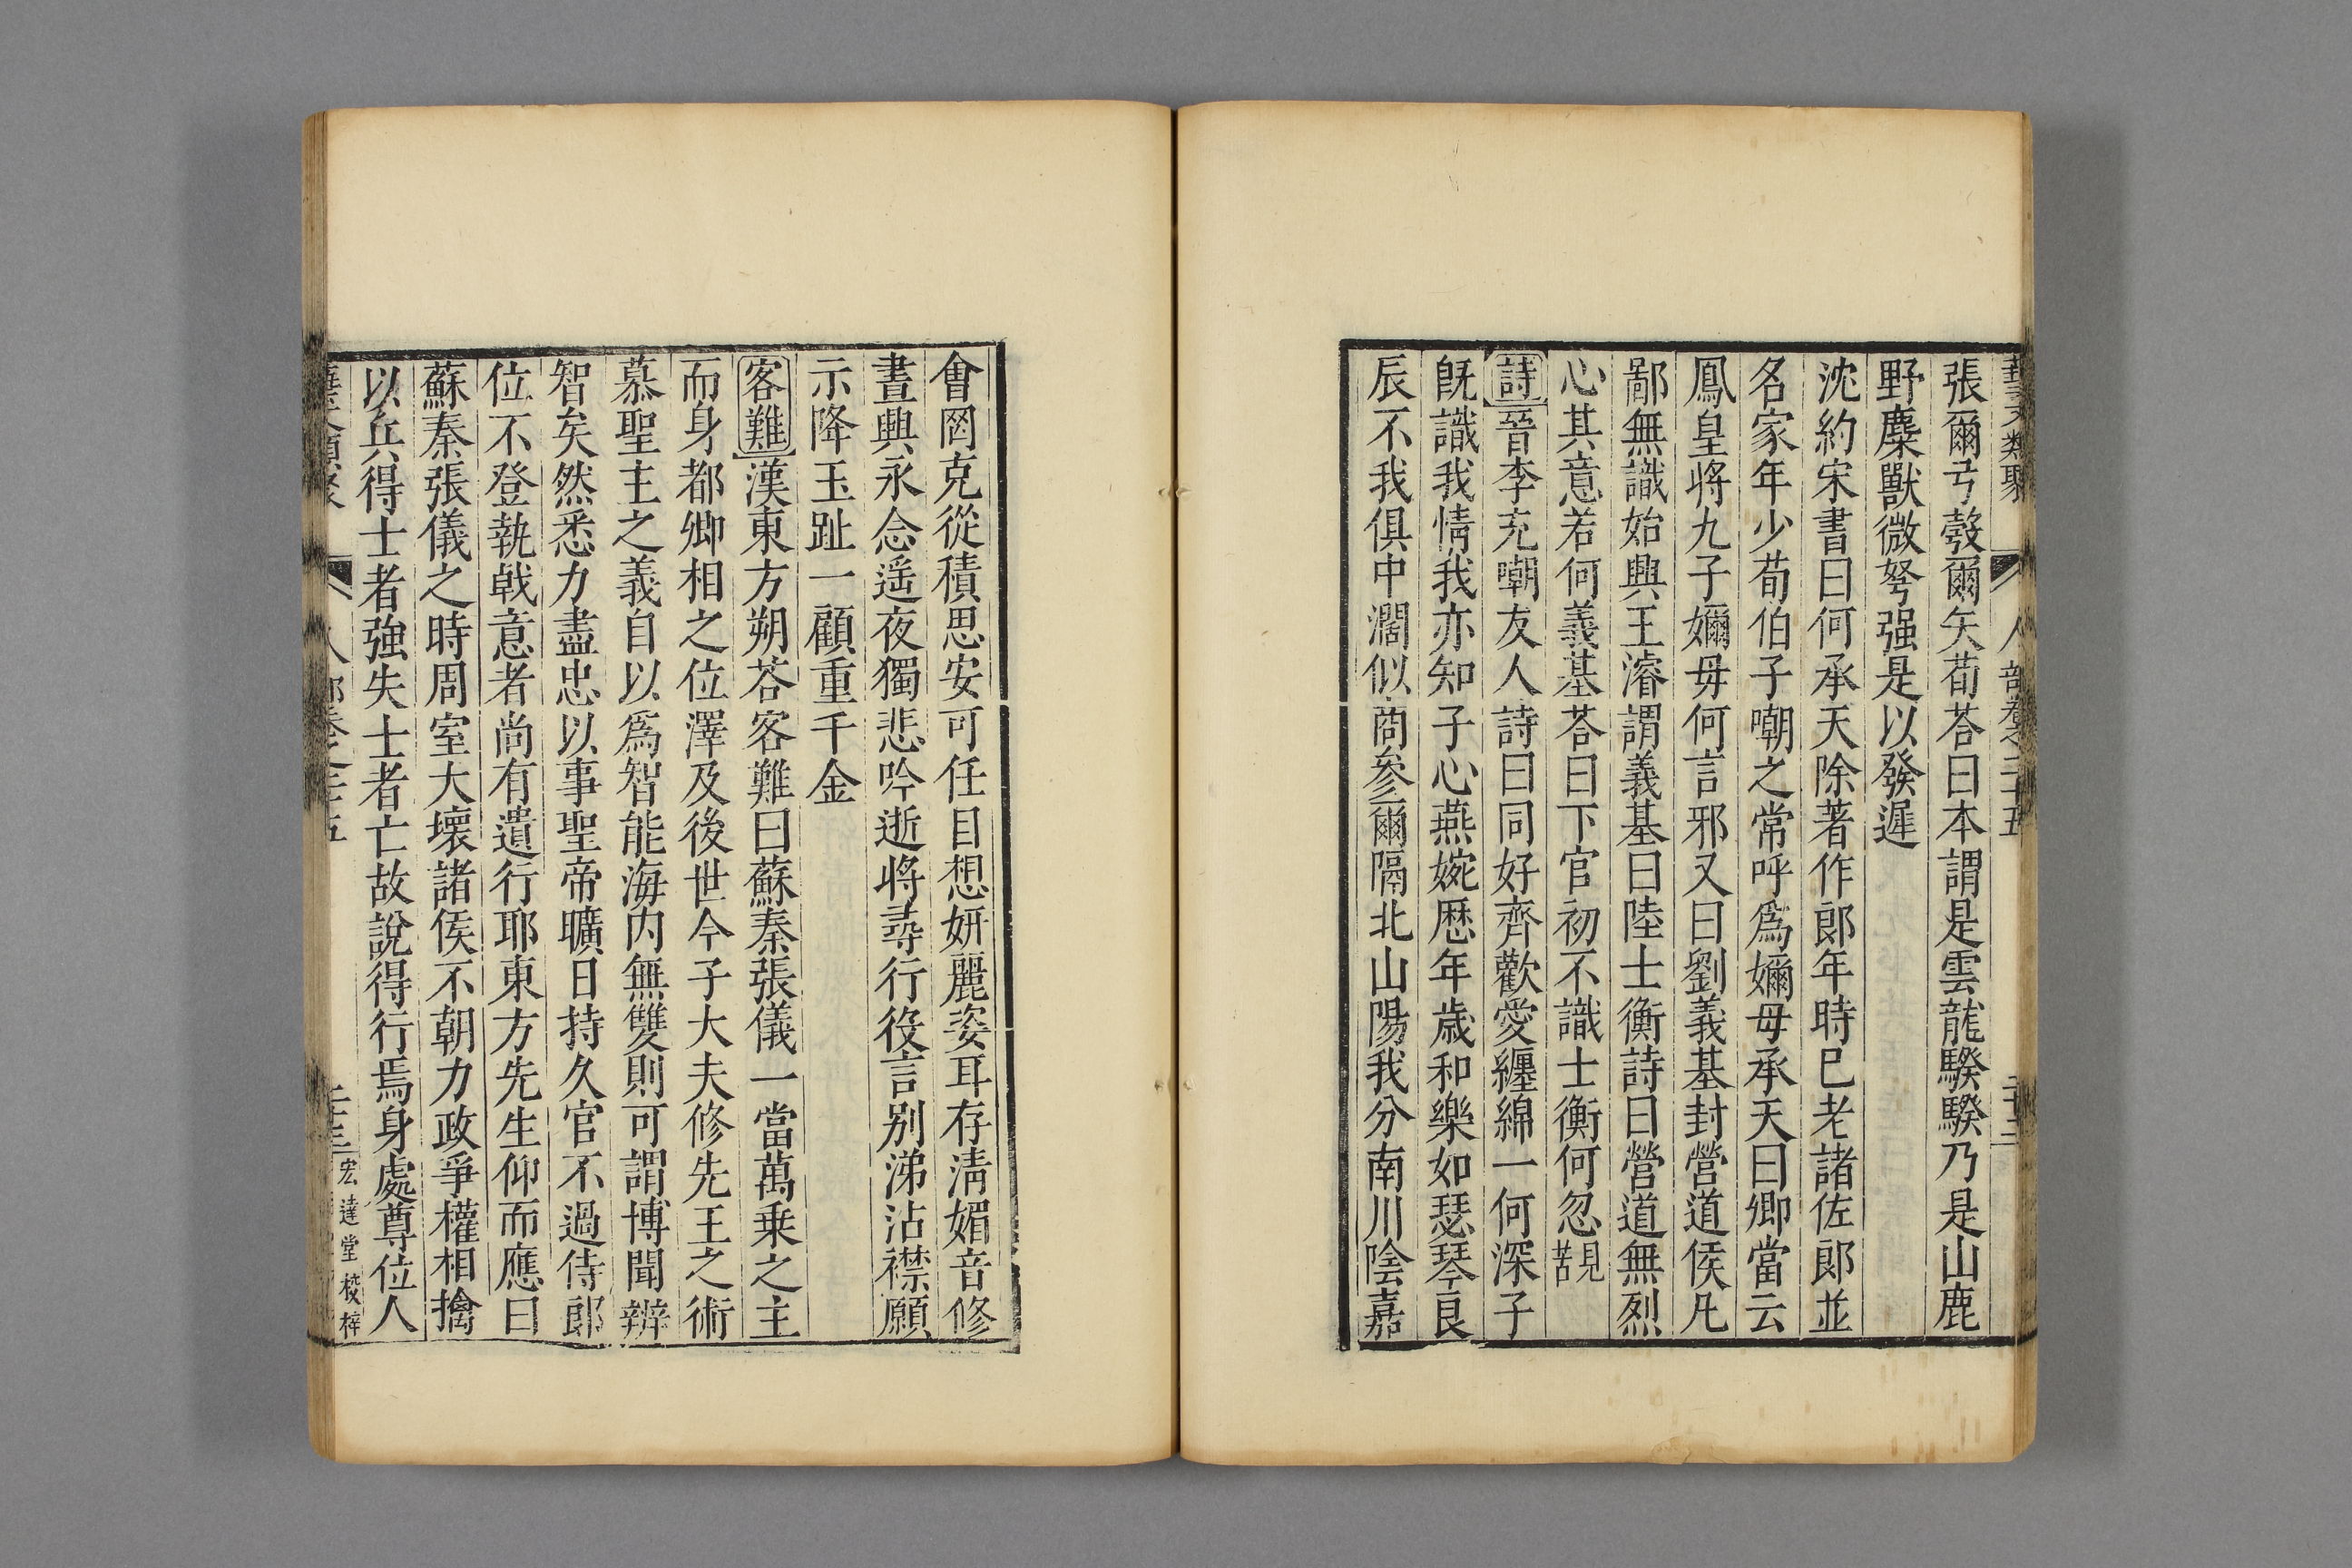 人部卷之二十五
張爾弓彀爾矢荀荅曰本謂是雲龍騤騤乃是山鹿
野麋獸微弩强是以發遲
沈約宋書曰何承天除著作郎年時巳老諸佐郎並
名家年少荀伯子嘲之常呼爲嬭母承天曰卿當云
鳳皇將九子嬭母何言邪又曰劉義基封營道侯凡
鄙無識始興王濬謂義基曰陸士衡詩曰營道無烈
心其意若何義基荅曰下官初不識士衡何忽見苦
詩晉李充嘲友人詩曰同好齊歡愛纏綿一何深子
旣識我情我亦知子心燕婉歷年歲和樂如瑟琴良
辰不我俱中濶似商參爾隔北山陽我分南川陰嘉
會罔克從積思安可任目想妍麗姿耳存淸媚音修
晝興永念遥夜獨悲吟逝將尋行役言别涕沾襟願
示降玉趾一顧重千金
客難漢東方朔荅客難曰蘇秦張儀一當萬乗之主
而身都卿相之位澤及後世今子大夫修先王之術
慕聖主之義自以爲智能海内無雙則可謂博聞辨
智矣然悉力盡忠以事聖帝曠日持久官不過侍郎
位不登執戟意者尚有遺行耶東方先生仰而應曰
蘇秦張儀之時周室大壞諸侯不朝力政爭權相擒
以兵得士者強失士者亡故說得行焉身處尊位人
宏達堂校梓